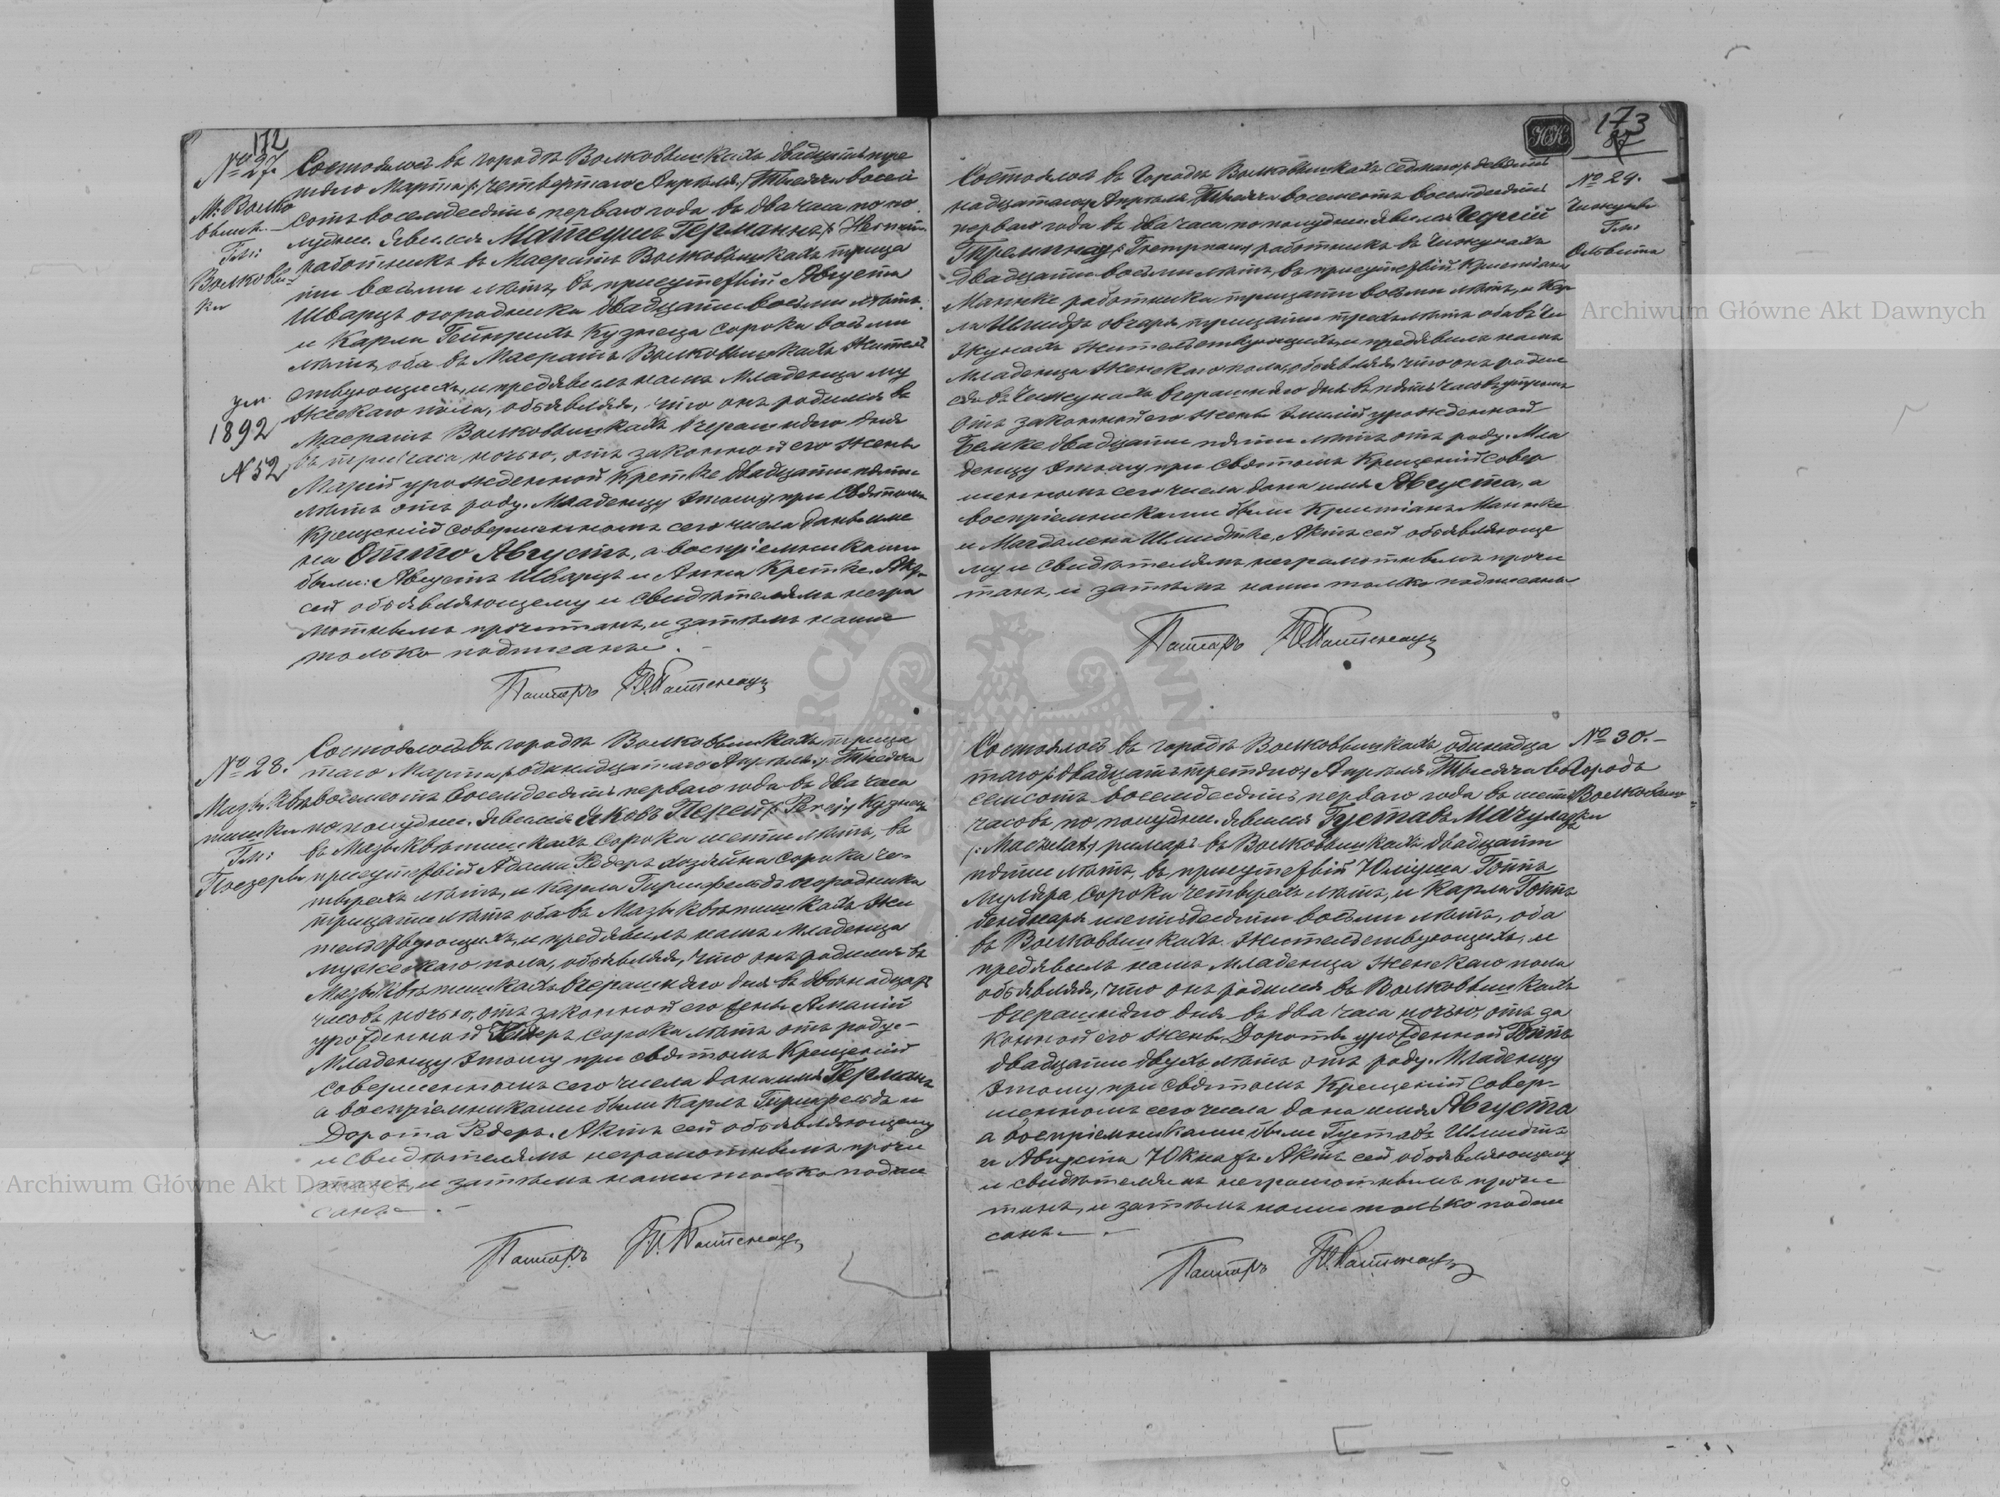 172
№ 27.
М: Волко
вышк.
Гм:
Волковыш
ки
ум.
1892
N 52
Состоялось в городѣ Волковышкахъ двадцать тре
тьяго Марта /: четвертаго Апрѣля :/ Тысяча восем
сотъ восемдесятъ перваго года въ два часа по по
лудни. Явился Матеушъ Германъ /: Hermann
работникъ въ Маератъ Волковышкахъ тридца
ти восьми лѣтъ, въ присутствіи Августа
Шварцъ огородника двадцати восьми лѣтъ
и Карла Гейнрихъ кузнеца сорока восьми
лѣтъ, оба въ Маератъ Волковышкахъ жител
ствующихъ, и предъявилъ намъ младенца му
жескаго пола, объявляя, что онъ родился въ
Маератъ Волковышкахъ вчерашняго дня
въ три часа ночью, отъ законной его жены
Маріи урожденной Кретке двадцати пяти
лѣтъ отъ роду. Младенцу этому при Святомъ
Крещеніи совершенномъ сего числа даны име
на Отто Августъ, а воспріемниками
были: Августъ Шварцъ и Анна Кретке. Актъ
сей объявляющему и свидѣтелямъ негра
мотнымъ прочитанъ, и затѣмъ нами
только подписанъ.
Пасторъ
№ 28.
Гм:
Состоялось въ городѣ Волковышкахъ, тридца
таго Марта /: одинадцатаго Апрѣля :/ Тысяча
восемсотъ восемдесятъ перваго года въ два часа
по полудни. Явился Яковъ Перей /: Perej :/ кузнец
въ сорока шести лѣтъ, въ
присутствіи Адама Редеръ хозяина сорока че-
тырехъ лѣтъ, и Карла Гиршфельдъ огородника
тридцати лѣтъ оба въ жи
тельствующихъ, и предъявилъ намъ младенца
мужескаго пола, объявляя, что онъ родился въ
вчерашняго дня въ двѣнадцать
часовъ ночью, отъ законной его жены Амаліи
урожденной сорока лѣтъ отъ роду.-
Младенцу этому при святомъ Крещеніи
совершенномъ сего числа дано имя Германъ
а воспріемниками были Карлъ Гиршфельдъ и
Дорота Редеръ. Актъ сей объявляющему
и свидѣтелямъ неграмотнымъ прочи
танъ, и затѣмъ нами только подпи
санъ.-
Пасторъ
173
87
№ 29.
Гм:
Состоялось въ городѣ Волковышкахъ седмаго /: девят
надцатаго :/ Апрѣля Тысяча восемсотъ восемдесятъ
перваго года въ два часа по полудни. Явился
работникъ въ Чижунахъ
двадцати восьми лѣтъ, въ присутствіи Кристіана
Манке работника тридцати восьми лѣтъ, и Кар
ла Шмидтъ овчаря тридцати трехъ лѣтъ оба въ Чи
жунахъ жительствующихъ, и предъявилъ намъ
младенца женскаго пола, объявляя, что онъ родил
ся въ Чижунахъ вчерашняго дня въ пять часовъ утромъ
отъ законной его жены Эмиліи урожденной
Бемке двадцати пяти лѣтъ отъ роду. Мла
денцу этому при Святомъ Крещеніи совер
шенномъ сего числа дано имя Августа, а
воспріемниками были Кристіанъ Манке
и Магдалена Шмидтке. Актъ сей объявляюще
му и свидѣтелямъ неграмотнымъ прочи
танъ, и затѣмъ нами только подписанъ
Пасторъ
№ 30.-
Городъ
Волковыш
ки
Состоялось въ городѣ Волковышкахъ, одинадца
таго /: двадцать третьяго :/ Апрѣля Тысяча во
семсотъ восемдесятъ перваго года въ шесть
часовъ по полудни. Явился Густавъ Мачулатъ
/: Maczulat :/ римарь въ Волковышкахъ двадцати
пяти лѣтъ, въ присутствіи Юліуша Готтъ
муляра сорока четырехъ лѣтъ, и Карла Готтъ
шестьдесяти восьми лѣтъ, оба
въ Волковышкахъ жительствующихъ, и
предъявилъ намъ младенца женскаго пола
объявляя, что онъ родился въ Волковышкахъ
вчерашняго дня въ два часа ночью, отъ за
конной его жены Дороты урожденной Готтъ
двадцати двухъ лѣтъ отъ роду. Младенцу
этому при святомъ Крещеніи совер-
шенномъ сего числа дано имя Августа
а воспріемниками были Густавъ Шмидтъ
и Августа Юкнатъ. Актъ сей объявляющему
и свидѣтелямъ неграмотнымъ прочи
танъ, и затѣмъ нами только подпи
санъ.-
Пасторъ
Archiwum Główne Akt Dawnych
Archiwum Główne Akt Dawnych